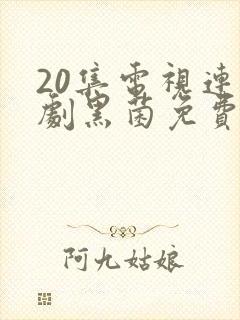 20集電視連
劇黑菌免費
阿九姑娘